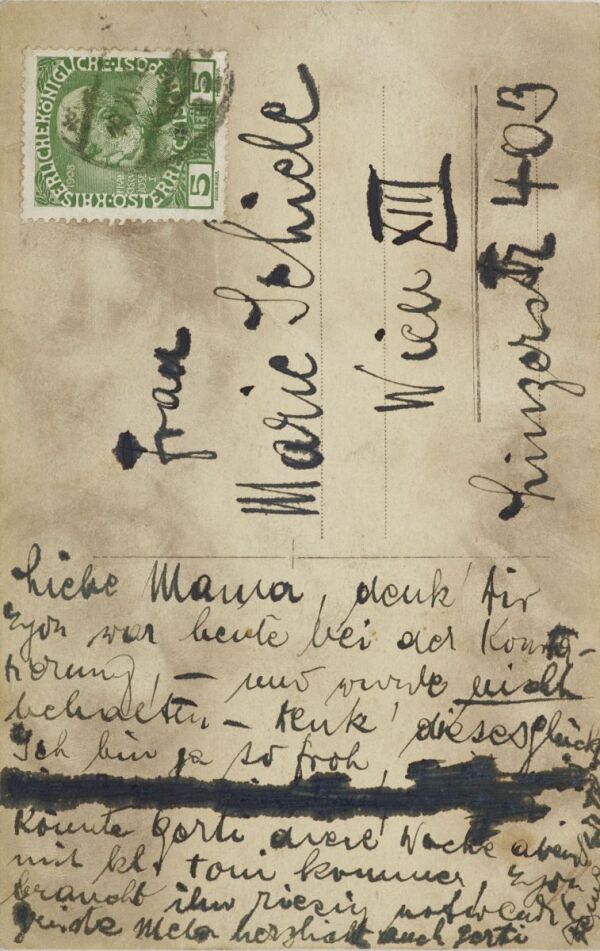 KAISERLICHE KÖNIGLICHE ÖSTERREICHISCHE POST
5
5
HELLER
1908
Frau
Marie Schiele
Wien XIII
Linzerstr 403
Liebe Mama, denk' dir
Egon war heute bei der
– und wurde nicht
behalten – denk' dieses Glück
Ich bin ja so froh,
könnte Gerti diese Woche
mit kl. Toni kommen, Egon
braucht ihn riesig
Mela herzlichst auch Gerti